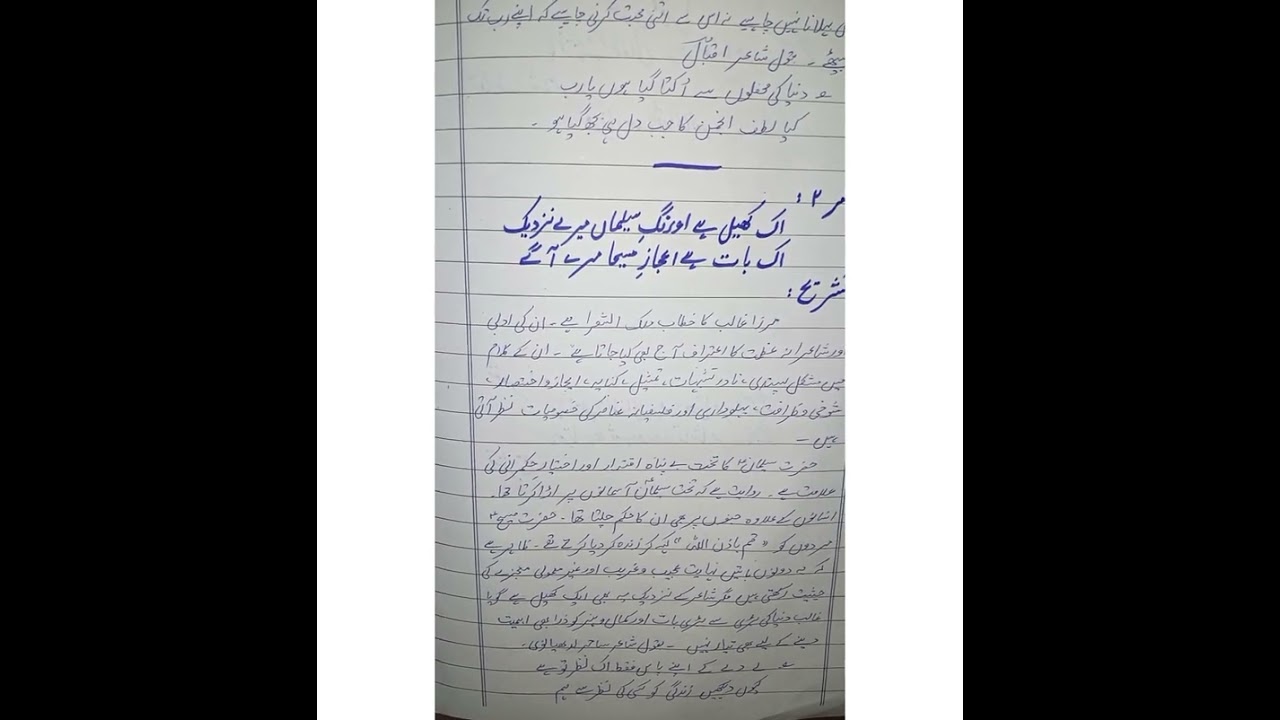 بہلانا نہیں چاہیے نہ اس سے اتنی محبت کرنی چاہیے کہ اپنے رب تک
بقول شاعر اقبالؒ
دنیا کی محفلوں سے اُکتا گیا ہوں یارب
کیا لطف انجمن کا جب دل ہی بجھ گیا ہو ۔
۲ :
اک کھیل ہے اورنگِ سلیماں میرے نزدیک
اک بات ہے اعجازِ مسیحا مرے آگے
تشریح :
مرزا غالب کا خطاب ملک الشعرا ہے ۔ ان کی ادبی
اور شاعرانہ عظمت کا اعتراف آج بھی کیا جاتا ہے ۔ ان کے کلام
میں مشکل پسندی، نادر تشبیہات، تمثیل، کنایہ، ایجاز و اختصار،
شوخی و ظرافت، پہلوداری اور فلسفیانہ عناصر کی خصوصیات نظر آتی
ہیں ۔
حضرت سلیمانؑ کا تخت بے پناہ اقتدار اور اختیارِ حکمرانی کی
علامت ہے ۔ روایت ہے کہ تخت سلیمانؑ آسمانوں پر اڑا کرتا تھا ۔
انسانوں کے علاوہ جنوں پر بھی ان کا حکم چلتا تھا ۔ حضرت مسیحؑ
مردوں کو "قم باذن اللہ" کہہ کر زندہ کر دیا کرتے تھے ۔ ظاہر ہے
کہ یہ دونوں باتیں نہایت عجیب و غریب اور غیر معمولی معجزے کی
حیثیت رکھتی ہیں مگر شاعر کے نزدیک یہ بھی ایک کھیل ہے گویا
غالب دنیا کی بڑی سے بڑی بات اور کمال و ہنر کو ذرا بھی اہمیت
دینے کے لیے بھی تیار نہیں ۔ بقول شاعر ساحر لدھیانوی ۔
لے دے کے اپنے پاس فقط اک نظر تو ہے
کیوں دیکھیں زندگی کو کسی کی نظر سے ہم